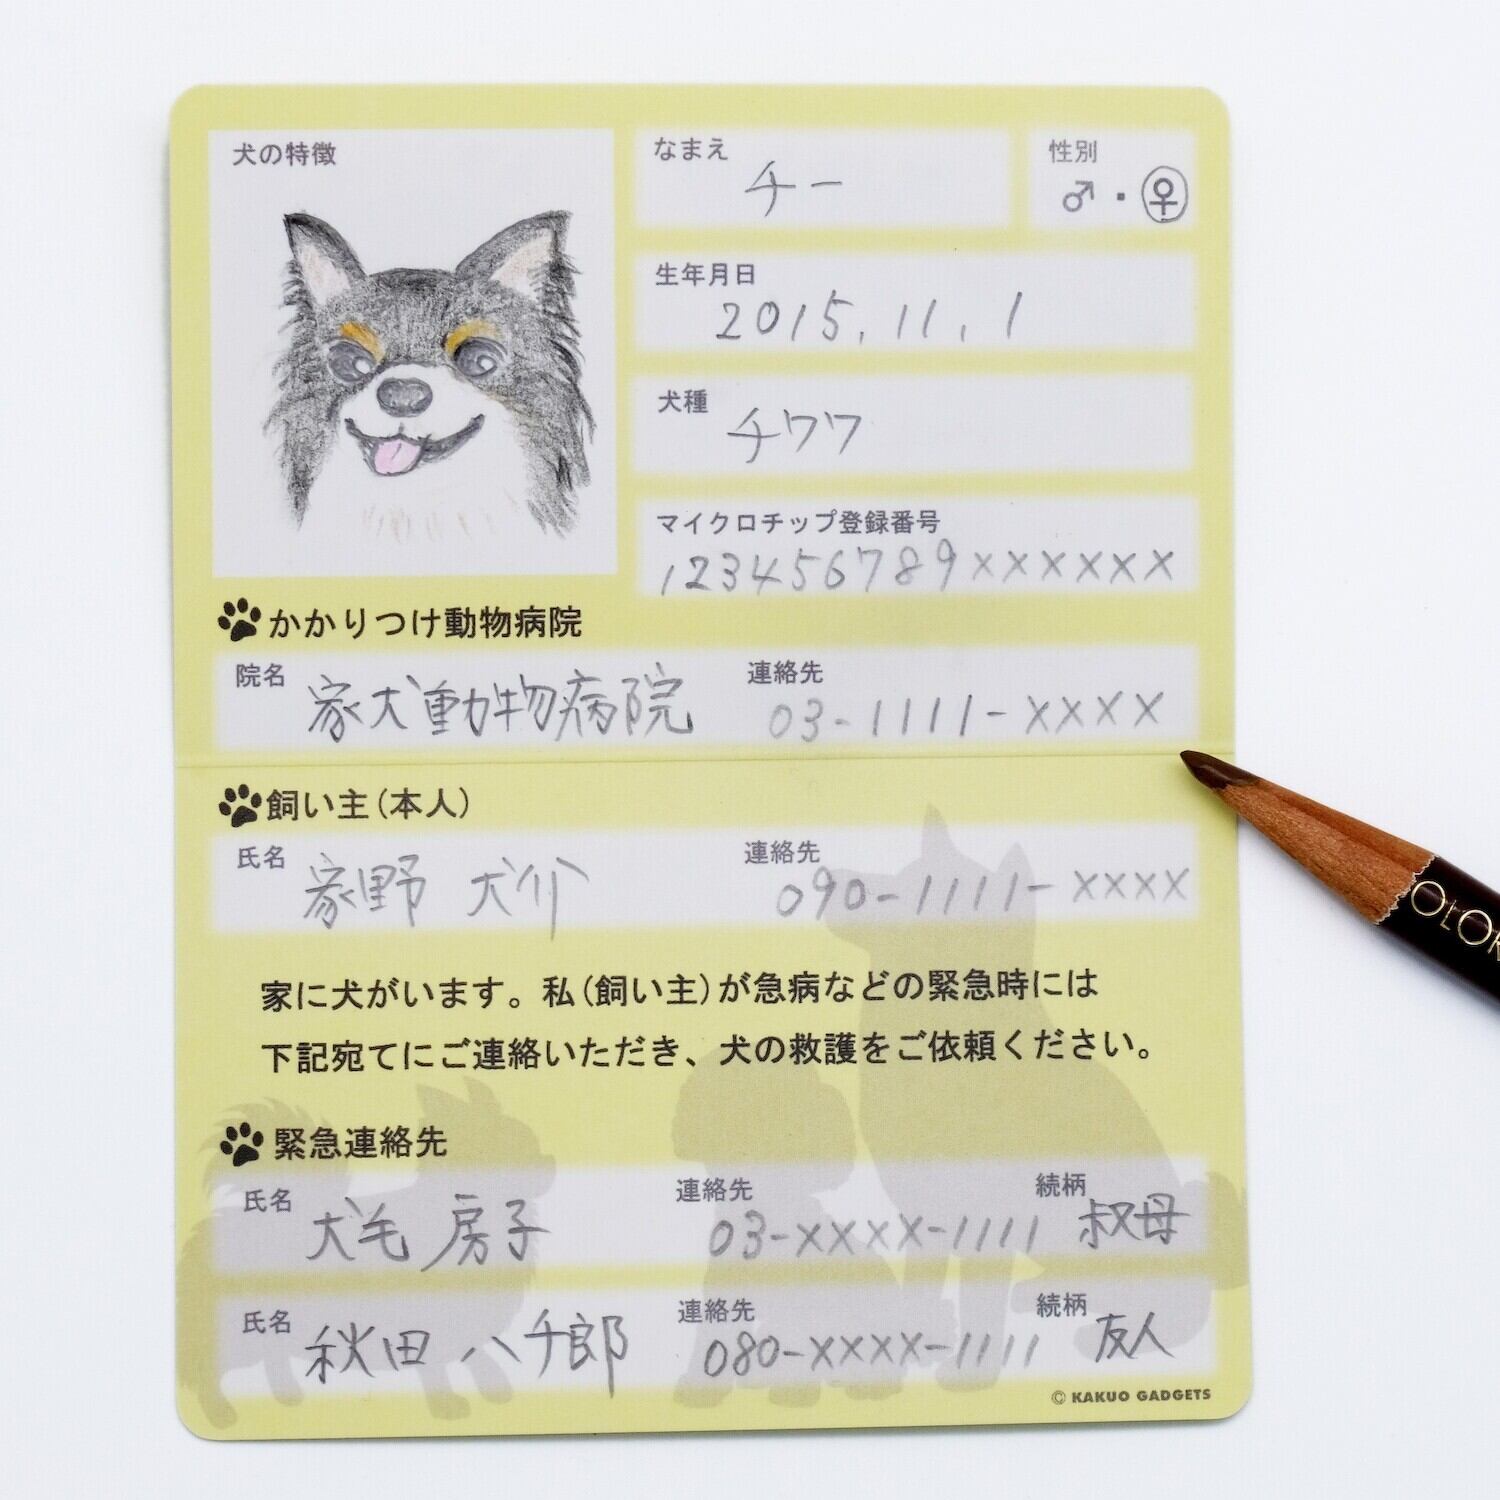 犬の特徴
なまえ
チー
性別
♂・♀
生年月日
2015.11.1
犬種
チワワ
マイクロチップ登録番号
123456789××××××
かかりつけ動物病院
院名
家犬動物病院
連絡先
03-1111-××××
飼い主(本人)
氏名
家野 犬介
連絡先
090-1111-××××
家に犬がいます。私(飼い主)が急病などの緊急時には
下記宛てにご連絡いただき、犬の救護をご依頼ください。
緊急連絡先
氏名
犬毛 房子
連絡先
03-××××-1111
続柄
叔母
氏名
秋田 八千郎
連絡先
080-××××-1111
続柄
友人
© KAKUO GADGETS